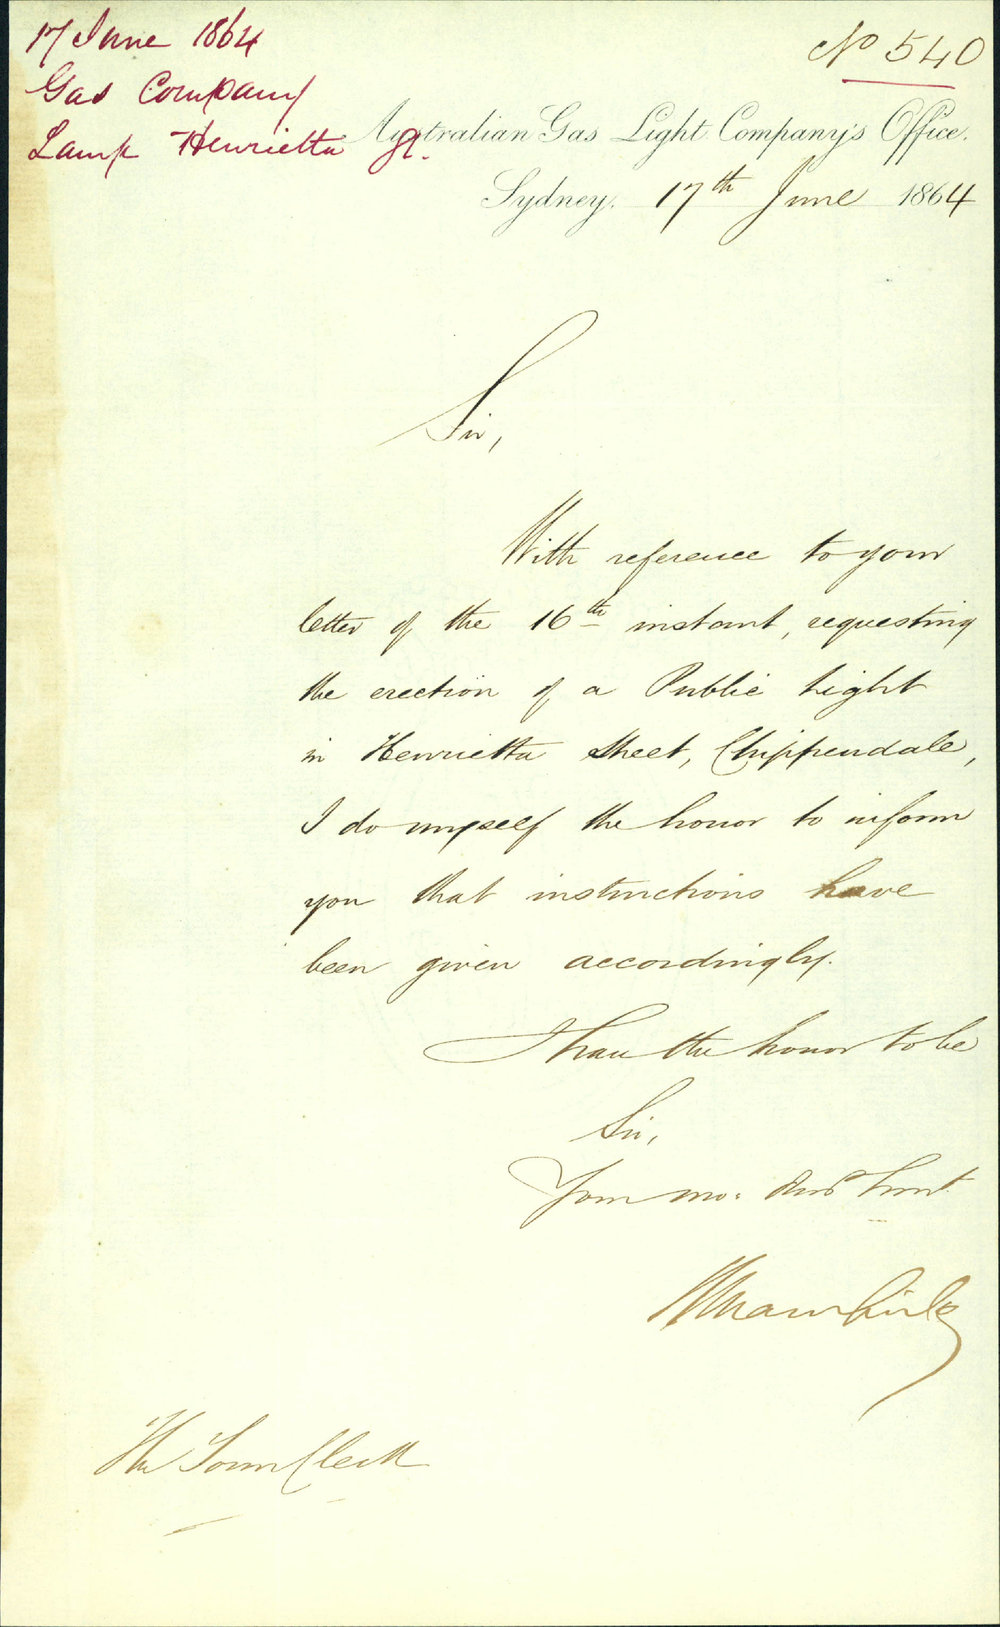 17 June 1864
Gas Company
Lamp Henrietta St.
No 540
Australian Gas Light Company's Office.
Sydney, 17th June 1864
Sir,
With reference to your
letter of the 16th instant, requesting
the erection of a Public Light
in Henrietta Street, Chippendale,
I do myself the honor to inform
you that instructions have
been given accordingly.
I have the honor to be
Sir,
Your mo. Obt Servt
The Town Clerk